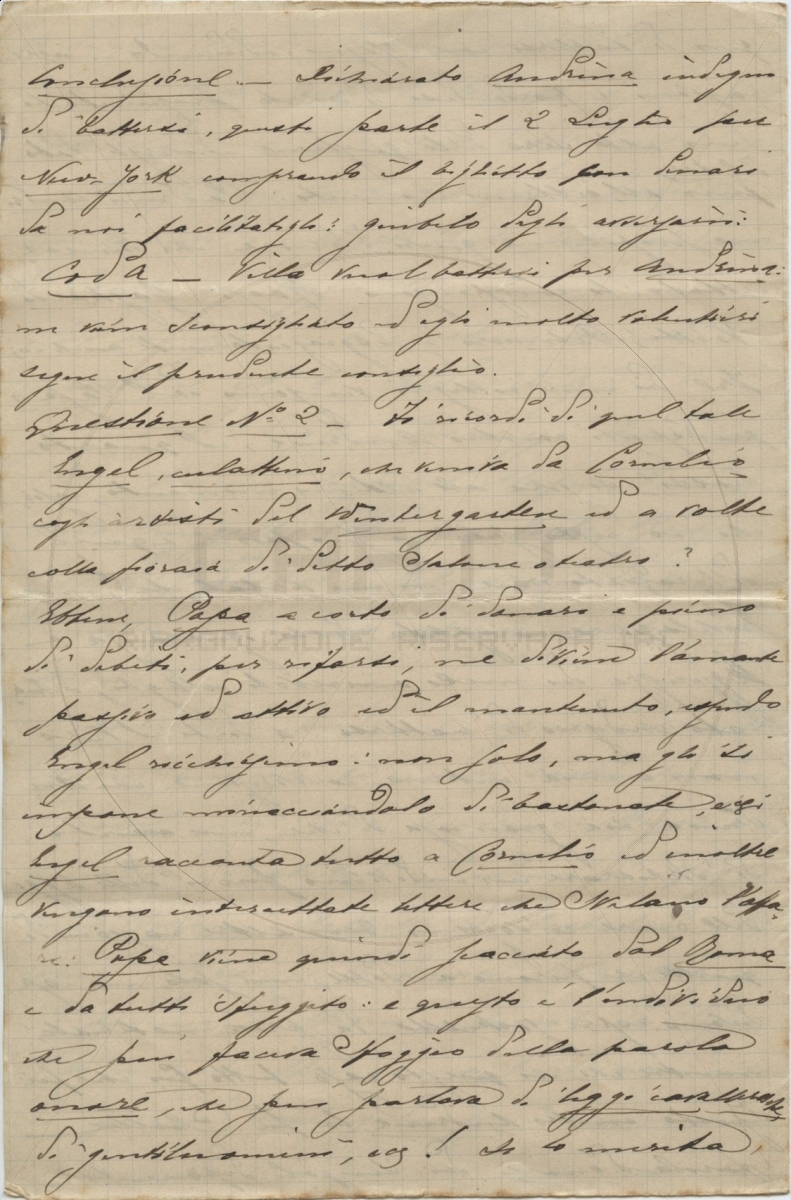 Conclusione. — Dichiarato Andrina indegno
di battersi, questi parte il 2 Luglio per
New-York comprando il biglietto con denari
da noi facilitatigli: giubilo degli avversari:
Coda — Villa vuol battersi per Andrina:
ne vien sconsigliato ed egli molto volentieri
segue il prudente consiglio.
Questione No 2 — Ti ricordi di quel tale
Engel, culattino, che veniva da Cornelio
cogli artisti del Wintergarten ed a volte
colla fioraia di detto Salone o teatro?
Ebbene, Papa a corto di danari e pieno
di debiti, per rifarsi, ne diviene l'amante
passivo ed attivo ed il mantenuto, essendo
Engel ricchissimo: non solo, ma gli s'
impone minacciandolo di bastonate, ecc;
Engel racconta tutto a Cornelio ed inoltre
vengono intercettate lettere che svelano l'affa-
re: Papa viene quindi scacciato dal Roma
e da tutti sfuggito: e questo è l'individuo
che più faceva sfoggio della parola
onore, che più parlava di leggi cavalleresche,
di gentiluomini, ecc! Se lo merita,